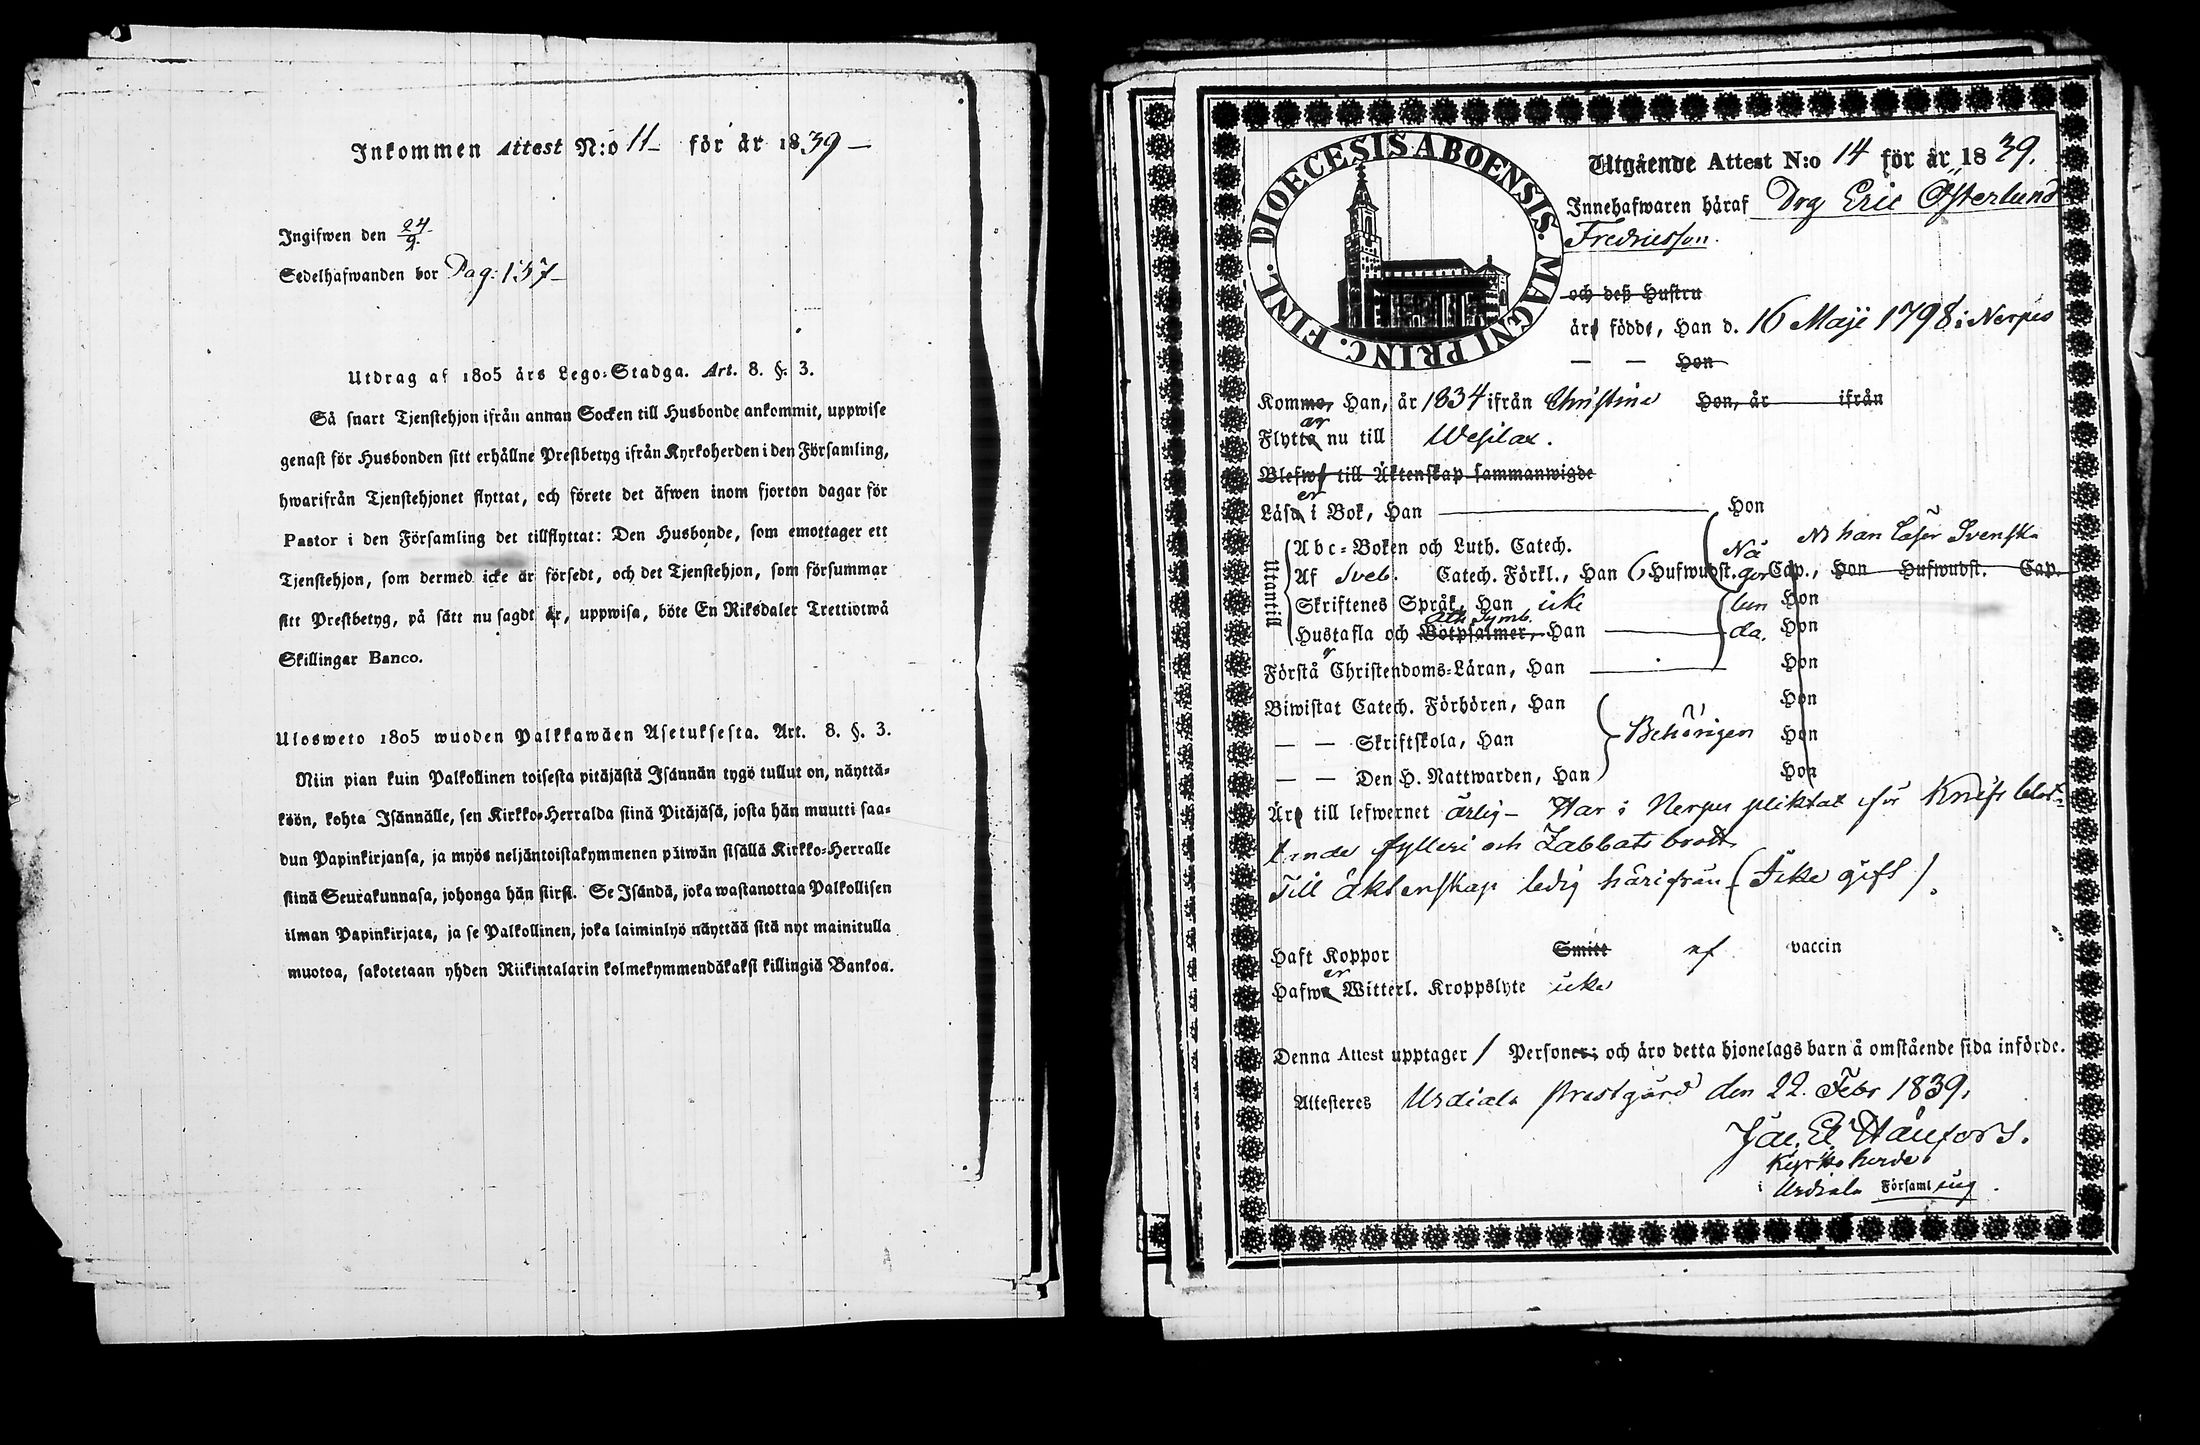 Inkommen Attest N:o 11 för år 1839
Ingifwen den 24/2
Sedelhafwanden bor Pag: 137
Utdrag af 1805 års Lego-Stadga. Art. 8. §. 3.
Så snart Tjenstehjon ifrån annan Socken till Husbonde ankommit, uppwise
genast för Husbonden sitt erhållne Prestbetyg ifrån Kyrkoherden i den Församling,
hwarifrån Tjenstehjonet flyttat, och förete det äfwen inom fjorton dagar för
Pastor i den Församling det tillflyttat: Den Husbonde, som emottager ett
Tjenstehjon, som dermed icke är försedt, och det Tjenstehjon, som försummar
sitt Prestbetyg, på sätt nu sagdt är, uppwisa, böte En Riksdaler Trettiotwå
Skillingar Banco.
Ulosweto 1805 wuoden Palkkawäen Asetuksesta. Art. 8. §. 3.
Niin pian kuin Palkollinen toisesta pitäjästä Isännän tygö tullut on, näyttä-
köön, kohta Isännälle, sen Kirkko-Herralda siinä Pitäjäsä, josta hän muutti saa-
dun Papinkirjansa, ja myös neljäntoistakymmenen päiwän sisällä Kirkko-Herralle
siinä Seurakunnasa, johonga hän siirsi. Se Isändä, joka wastanottaa Palkollisen
ilman Papinkirjata, ja se Palkollinen, joka laiminlyö näyttää sitä nyt mainitulla
muotoa, sakotetaan yhden Riikintalarin kolmekymmendäkaksi killingiä Bankoa.
DIOECESIS ABOENSIS. MAGNI PRINC. FINL.
Utgående Attest N:o 14 för år 1839.
Innehafwaren häraf Drg Eric Österlund
Fredricsson.
och deß Hustru
äre födde, Han d. 16 Maji 1798 i Nerpes
— — Hon
Komme, Han, år 1834 ifrån Christina Hon, år ifrån
ar
Flytta nu till Wesilax.
Blefwe till Äktenskap sammanwigde
er
Läsa i Bok, Han Hon
Utantill
Abc-Boken och Luth. Catech. Nö N han läser Svenska
Af Sveb. Catech. Förkl., Han 6 Hufwudst. gor Cap., Hon Hufwudst. Cap.
Skriftenes Språk, Han icke lun Hon
Ath. Symb.
Hustafla och Botpsalmer, Han da. Hon
r
Förstå Christendoms-Läran, Han Hon
Biwistat Catech. Förhören, Han Hon
— — Skriftskola, Han Behörigen Hon
— — Den H. Nattwarden, Han Hon
Äre till lefwernet ärlig — Har i Nerpes pliktat för Knifs blot-
tande fylleri och Sabbats brott
Till äktenskap ledig härifrån (Icke gift).
Haft Koppor Smitt af vaccin
er
Hafwa Witterl. Kroppslyte icke
Denna Attest upptager 1 Personer; och äro detta hjonelags barn å omstående sida införde.
Attesteres Urdiala Prestgård den 22. Febr 1839.
Kyrkoherde
i Urdiala Församling.